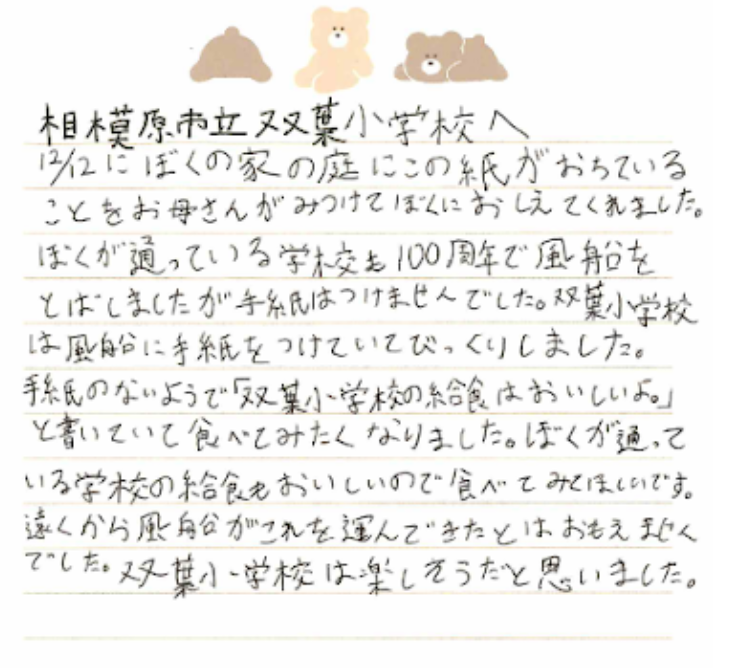 相模原市立双葉小学校へ
12/12にぼくの家の庭にこの紙がおちている
ことをお母さんがみつけてぼくにおしえてくれました。
ぼくが通っている学校も100周年で風船を
とばしましたが手紙はつけませんでした。双葉小学校
は風船に手紙をつけていてびっくりしました。
手紙のないようで「双葉小学校の給食はおいしいよ。」
と書いていて食べてみたくなりました。ぼくが通って
いる学校の給食もおいしいので食べてみてほしいです。
遠くから風船がこれを運んできたとはおもえません
でした。双葉小学校は楽しそうだと思いました。